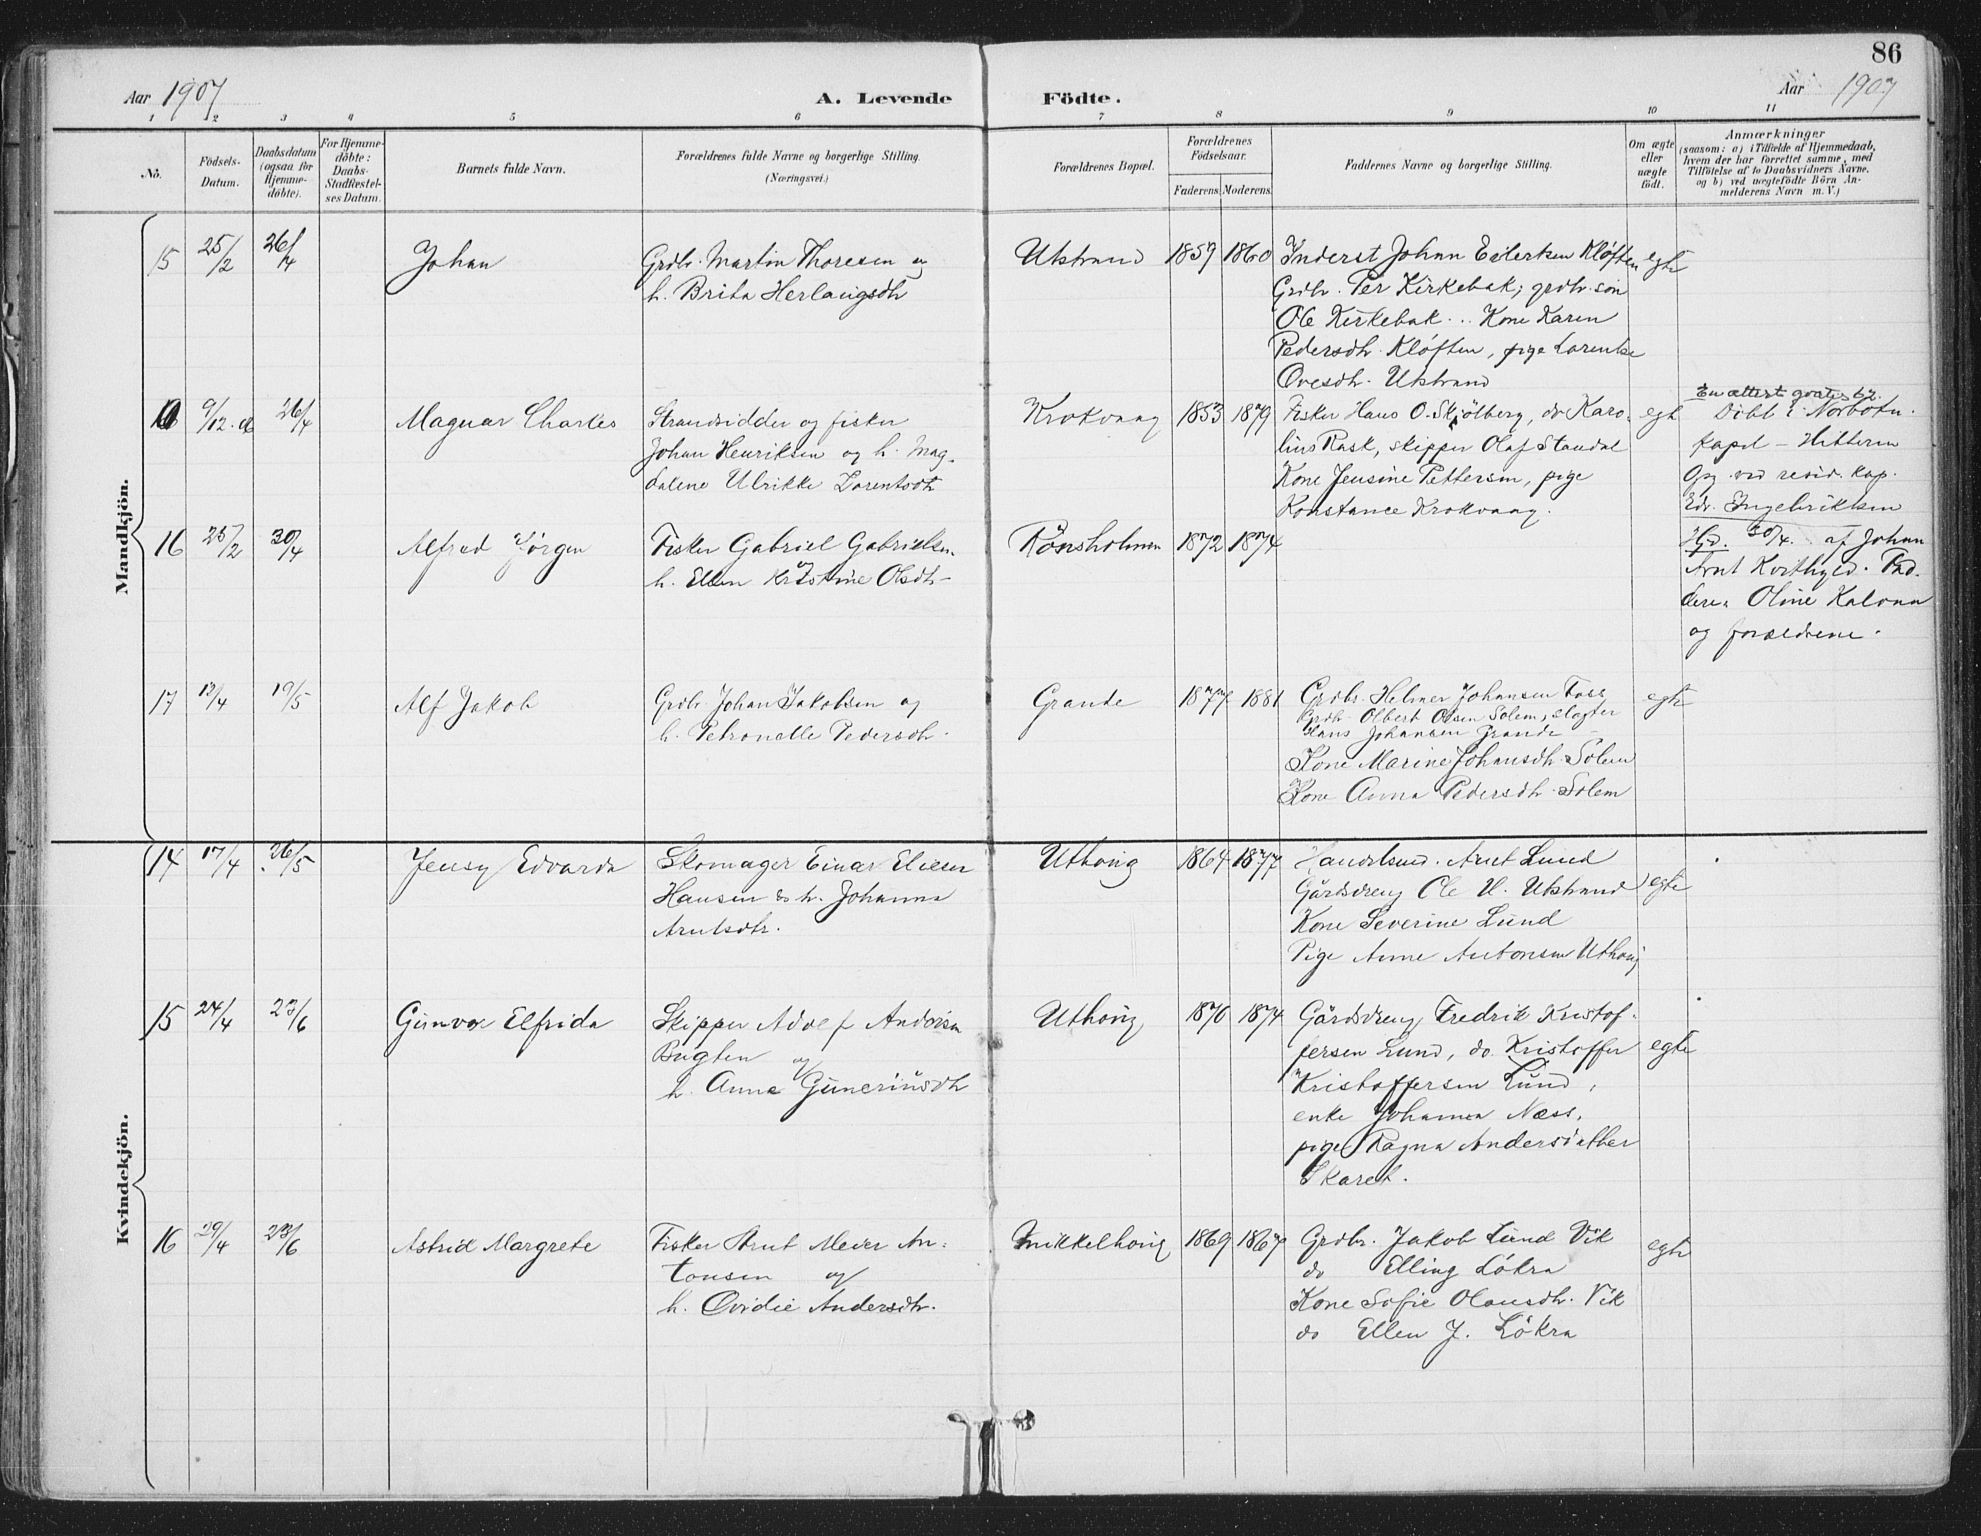 86
Aar 1907
A. Levende Födte.
Aar 1907
1 2 3 4 5 6 7 8 9 10 11
No.
Födsels-Datum.
Daabsdatum (ogsaa for Hjemme-döbte).
For Hjemme-döbte: Daabs-Stadfæstel-ses Datum.
Barnets fulde Navn.
Forældrenes fulde Navne og borgerlige Stilling.
(Næringsvei.)
Forældrenes Bopæl.
Forældrenes Födselsaar.
Faderens. Moderens.
Faddernes Navne og borgerlige Stilling.
Om ægte eller uægte födt.
Anmærkninger
(saasom: a) i Tilfælde af Hjemmedaab,
hvem der har forrettet samme, med
Tilföielse af to Daabsvidners Navne.
og b) ved uægtefödte Börn An-
melderens Navn m. V.)
Mandkjön.
15 25/2 26/4 Johan
Grdbr. Martin Thoresen og
h. Brita Herlaugsdtr
Utstrand 1857 1860
Inderst Johan Eilertsen Kløften
Grdbr. Per Kirkebak; grdbr. søn
Ole Kirkebak .. Kone Karen
Pedersdtr. Kløften, pige Lorentse
Ovesdtr. Utstrand
egte
9/12 26/4 Magnar Charles
Strandsidder og fisker
Johan Henriksen og h. Mag-
dalene Ulrikke Lorentsdtr
Krokvaag 1853 1879
Fisker Hans O. Skjölberg, do Karo-
lius Rask, skipper Olaf Standal
Kone Jensine Pettersen, pige
Konstance Krokvaag.
egte
En attest gratis
Döbt i Norbotn
kapel – Hitteren
Opg. ved resid. kap.
Edv. Ingebriktsen
16 25/2 30/4 Alfred Jörgen
Fisker Gabriel Gabrielsen
og
h. Ellen Kristine Olsdtr
Rönsholmen 1872 1874
Hjd. 30/4. af Johan
Arnt Kvithyld. Fad-
dere: Oline Kalvaa
og forældrene.
17 12/4 19/5 Alf Jakob
Grdbr. Johan Jakobsen og
h. Petronelle Pedersdtr.
Grande 1877 1881
Grdbr. Helmer Johansen Foss
Grdbr. Olbert Olsen Solem, slagter
Hans Johansen Grande
Kone Marine Johansdtr. Solem
Kone Anna Pedersdtr. Solem
egte
Kvindekjön.
14 17/4 26/5 Jensy Edvarda
Skomager Einar Eliesen
Hansen & h. Johanna
Arntsdtr.
Uthoug 1864 1877
Handelsmd. Arnt Lund
Gårdsdreng Ole H. Utstrand
Kone Severine Lund
Pige Anne Antonsen Uthoug
egte
15 24/4 23/6 Gunvor Elfrida
Skipper Adolf Andersen
Bugten og
h. Anna Guneriusdtr
Uthoug 1870 1874
Gårdsdreng Fredrik Kristof-
fersen Lund, do. Kristoffer
Kristoffersen Lund,
enke Johanna Næss,
pige Ragna Andersdatter
Skaret.
egte
16 29/4 23/6 Astrid Margrete
Fisker Arnt Meier An-
tonsen og
h. Ovidie Andersdtr.
Mikkelhoug 1869 1867
Grdbr. Jakob Lund Vik
do Elling Løkra
Kone Sofie Olausdtr. Vik
do Ellen J. Løkra
egte